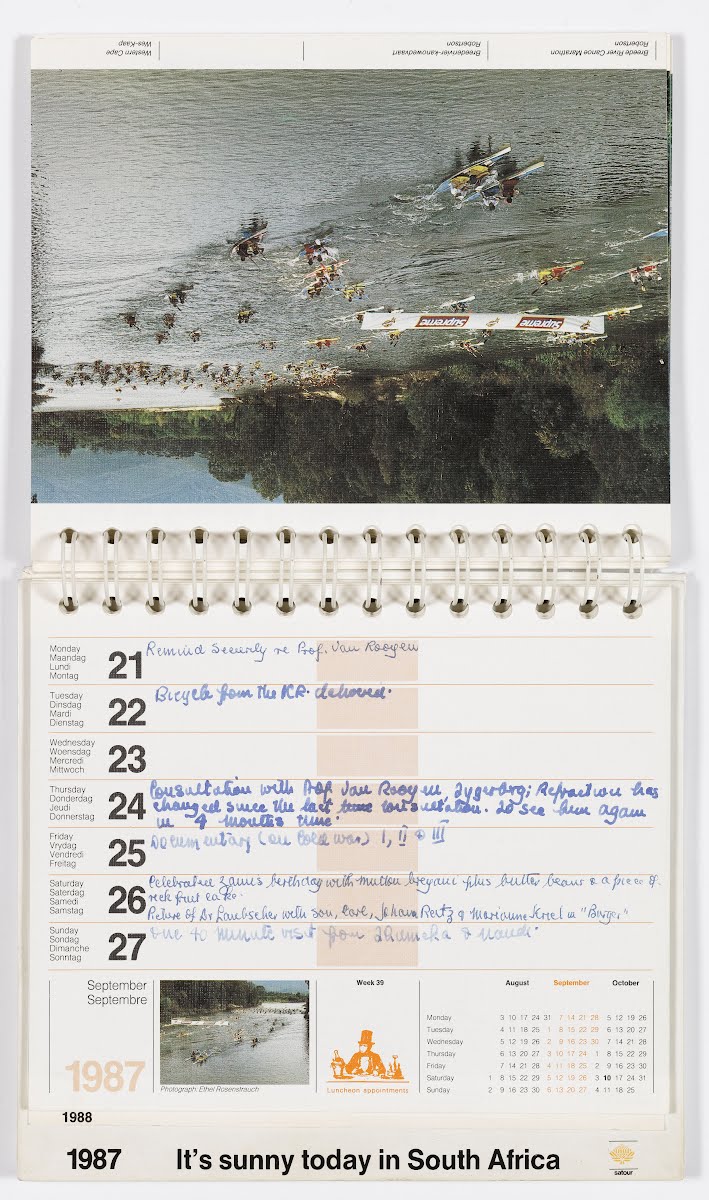 Western Cape
Wes-Kaap
Breederivier-kanowedvaart
Robertson
Breede River Canoe Marathon
Robertson
Supreme
Supreme
Monday
Maandag
Lundi
Montag
21
Remind Security re Prof. Van Rooyen
Tuesday
Dinsdag
Mardi
Dienstag
22
Bicycle from the ICR. delivered.
Wednesday
Woensdag
Mercredi
Mittwoch
23
Thursday
Donderdag
Jeudi
Donnerstag
24
Consultation with Prof Van Rooyen, Tygerberg; Refraction has
changed since the last time consultation. To see him again
in 4 months time.
Friday
Vrydag
Vendredi
Freitag
25
Documentary (on cold war) I, II & III
Saturday
Saterdag
Samedi
Samstag
26
Celebrated Zamis birthday with mutton breyani plus butter beans & a piece of
rich fruit cake.
Picture of Dr Laubscher with son, Carl, Johann Reitz & Marianne Kriel in "Burger"
Sunday
Sondag
Dimanche
Sonntag
27
One 40 minute visit from &
September
Septembre
1987
Photograph: Ethel Rosenstrauch
Week 39
Luncheon appointments
August September October
Monday 3 10 17 24 31 7 14 21 28 5 12 19 26
Tuesday 4 11 18 25 1 8 15 22 29 6 13 20 27
Wednesday 5 12 19 26 2 9 16 23 30 7 14 21 28
Thursday 6 13 20 27 3 10 17 24 1 8 15 22 29
Friday 7 14 21 28 4 11 18 25 2 9 16 23 30
Saturday 1 8 15 22 29 5 12 19 26 3 10 17 24 31
Sunday 2 9 16 23 30 6 13 20 27 4 11 18 25
1988
1987 It's sunny today in South Africa
satour